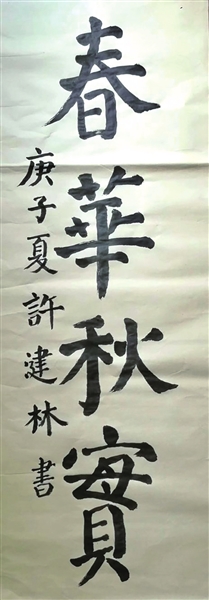 春華秋實
庚子夏許建林書